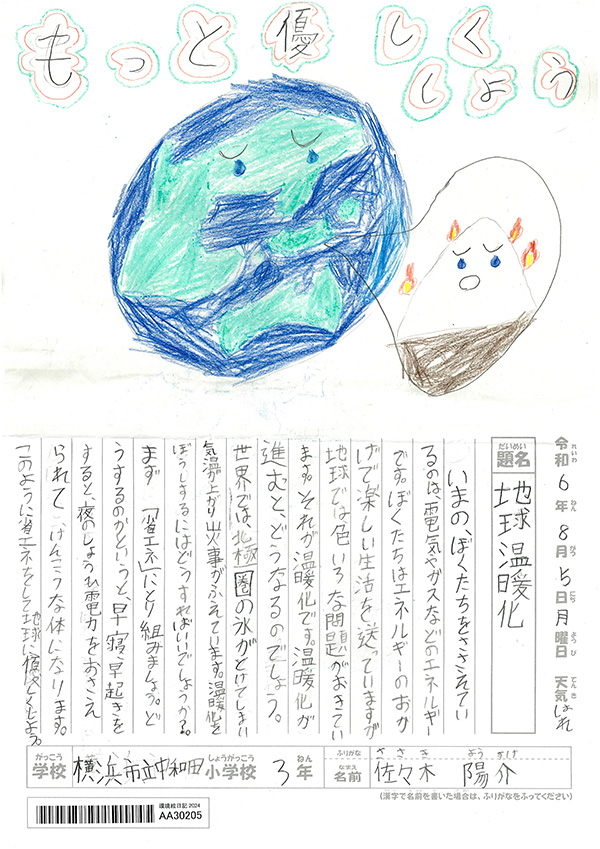 もっと優しく
しょう
令和6年8月5日月曜日 天気 はれ
れいわ ねん がつ にち ようび てんき
だいめい
題名
地球温暖化
いまの、ぼくたちをささえてい
るのは、電気やガスなどのエネルギー
です。ぼくたちはエネルギーのおか
げで楽しい生活を送っていますが
地球では色いろな問題がおきてい
ます。それが温暖化です。温暖化が
進むと、どうなるのでしょう。
世界では、北極圏の氷がとけてしまい
気温が上がり山火事がふえています。温暖化を
ぼうしするにはどうすればいいでしょうか?。
まず「省エネ」にとり組みましょう。ど
うするのかというと、早寝、早起きを
すると、夜のしょうひ電力をおさえ
られて、けんこうな体になります。
このように省エネをして地球に優しくしよう。
がっこう しょうがっこう ねん
学校 横浜市立中和田小学校 3年
ふりがな ささき ようすけ
なまえ
名前 佐々木 陽介
(漢字で名前を書いた場合は、ふりがなをふってください)
環境絵日記 2024
AA30205